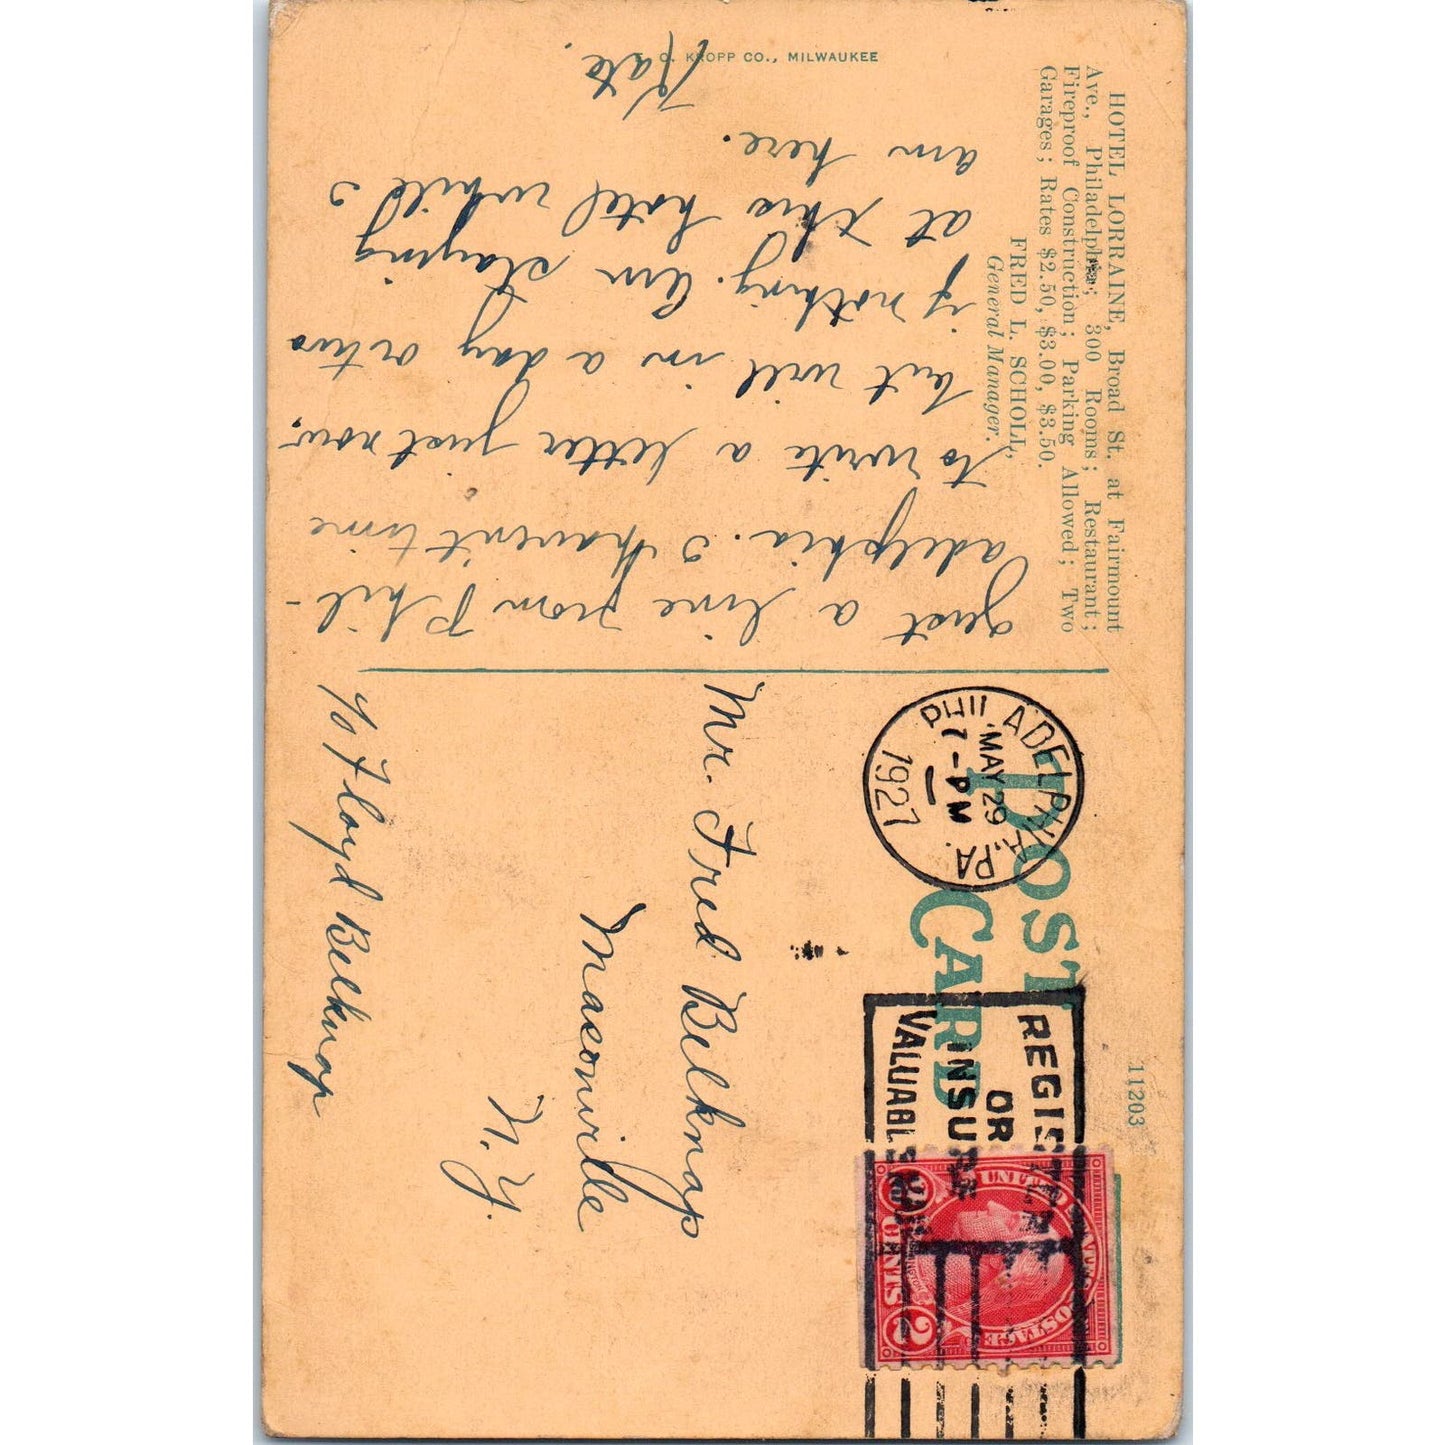 HOTEL LORRAINE, Broad St. at Fairmount
Ave., Philadelphia; 300 Rooms; Restaurant;
Fireproof Construction; Parking Allowed; Two
Garages; Rates $2.50, $3.00, $3.50.
FRED L. SCHOLL,
General Manager.
O. KROPP CO., MILWAUKEE
Just a line from Phil-
adelphia. I haven't time
to write a letter just now,
but will in a day or two
if nothing. Am staying
at this hotel while I
am here.
Kate.
11203
POST
CARD
PHILADELPHIA, PA.
MAY 29
7-PM
1927
REGISTER
OR
INSURE
VALUABLE MAIL
UNITED STATES POSTAGE
WASHINGTON
2 CENTS 2
Mr. Fred Belknap
Masonville
N.Y.
c/o Floyd Belknap